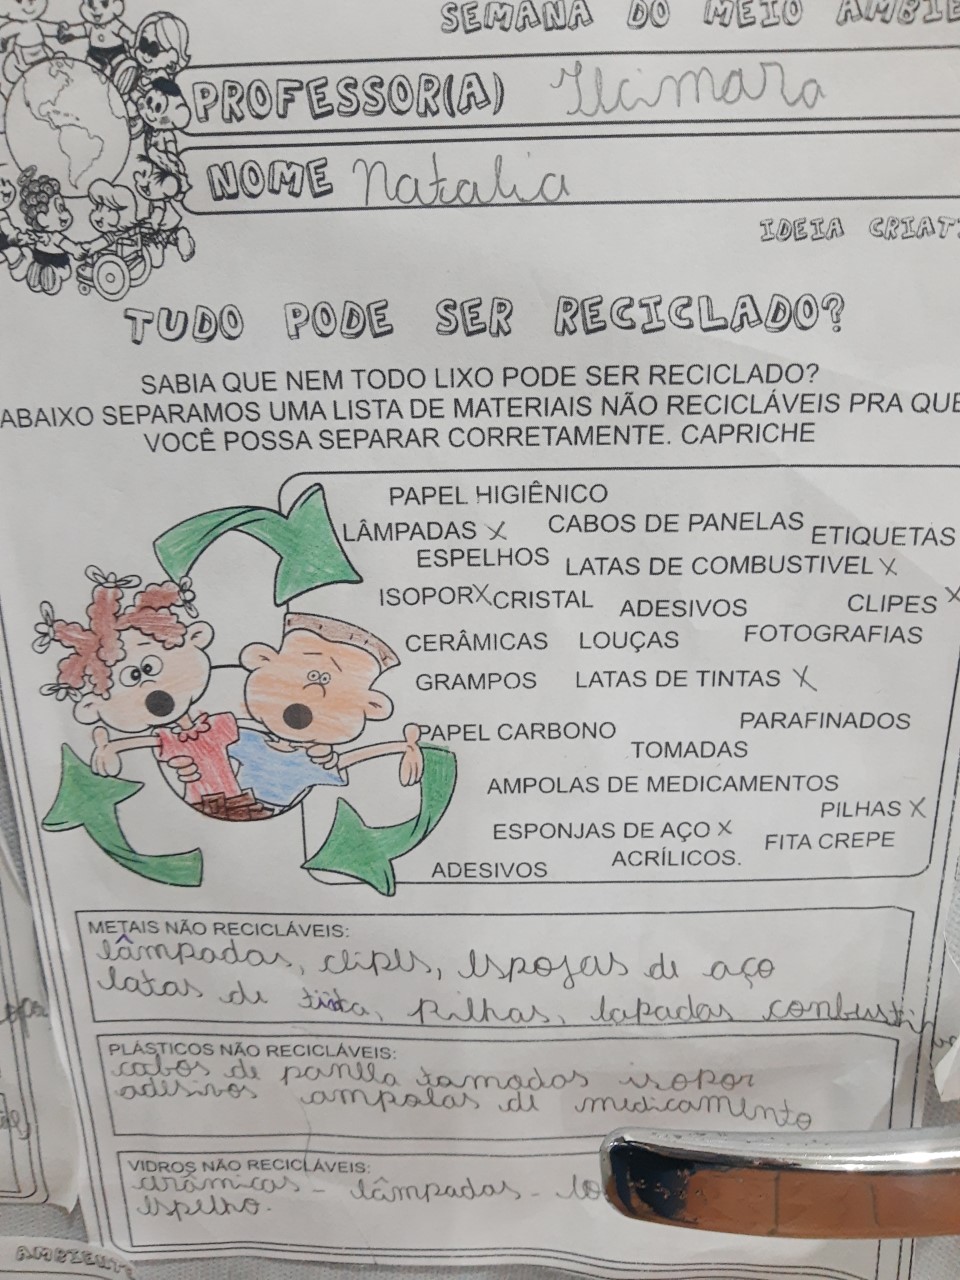 SEMANA DO MEIO AMBIE
PROFESSOR(A) Ilcimara
NOME Natalia
IDEIA CRIATI
TUDO PODE SER RECICLADO?
SABIA QUE NEM TODO LIXO PODE SER RECICLADO?
ABAIXO SEPARAMOS UMA LISTA DE MATERIAIS NÃO RECICLÁVEIS PRA QUE
VOCÊ POSSA SEPARAR CORRETAMENTE. CAPRICHE
PAPEL HIGIÊNICO
LÂMPADAS X CABOS DE PANELAS ETIQUETAS
ESPELHOS LATAS DE COMBUSTIVEL X
ISOPOR X CRISTAL ADESIVOS CLIPES X
CERÂMICAS LOUÇAS FOTOGRAFIAS
GRAMPOS LATAS DE TINTAS X
PAPEL CARBONO PARAFINADOS
TOMADAS
AMPOLAS DE MEDICAMENTOS
PILHAS X
ESPONJAS DE AÇO X FITA CREPE
ADESIVOS ACRÍLICOS.
METAIS NÃO RECICLÁVEIS:
lâmpadas, clipes, espojas de aço
latas de tinta, pilhas, lapadas conbusti
PLÁSTICOS NÃO RECICLÁVEIS:
cabos de panella tamodos isopor
adesivos ampolas de medicamento
VIDROS NÃO RECICLÁVEIS:
cirâmicas - lâmpadas - lo
espelho.
AMBIENTE